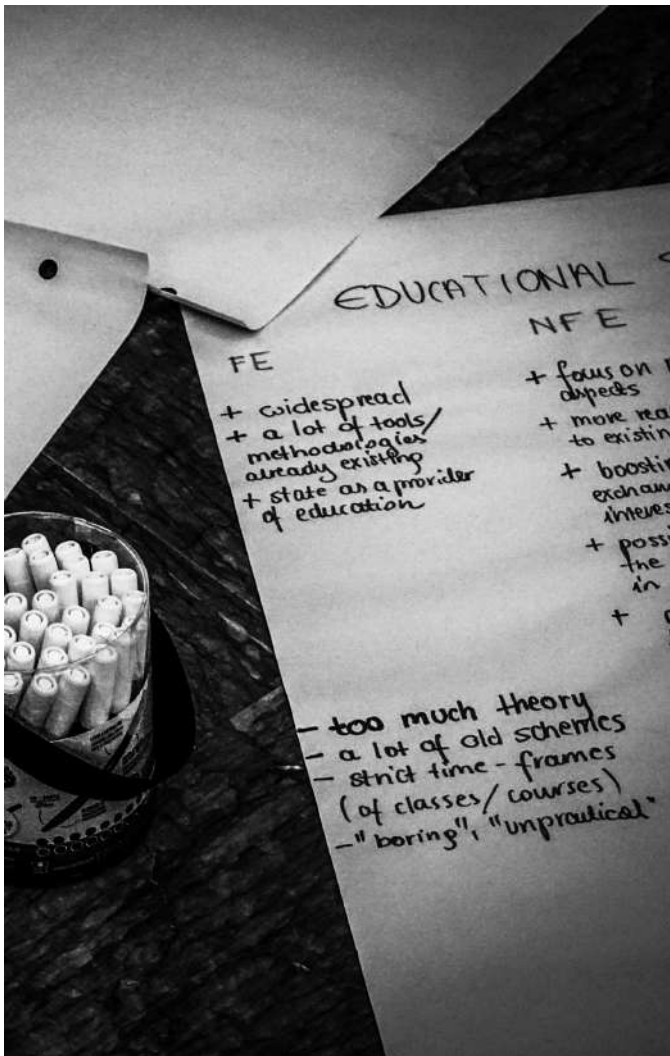 EDUCATIONAL
FE
+ widespread
+ a lot of tools/
methodologies
already existing
+ state as a provider
of education
- too much theory
- a lot of old schemes
- strict time-frames
(of classes/courses)
- "boring", "unpractical"
NFE
+ focus on
aspects
+ more
to
+
+
the
in
+